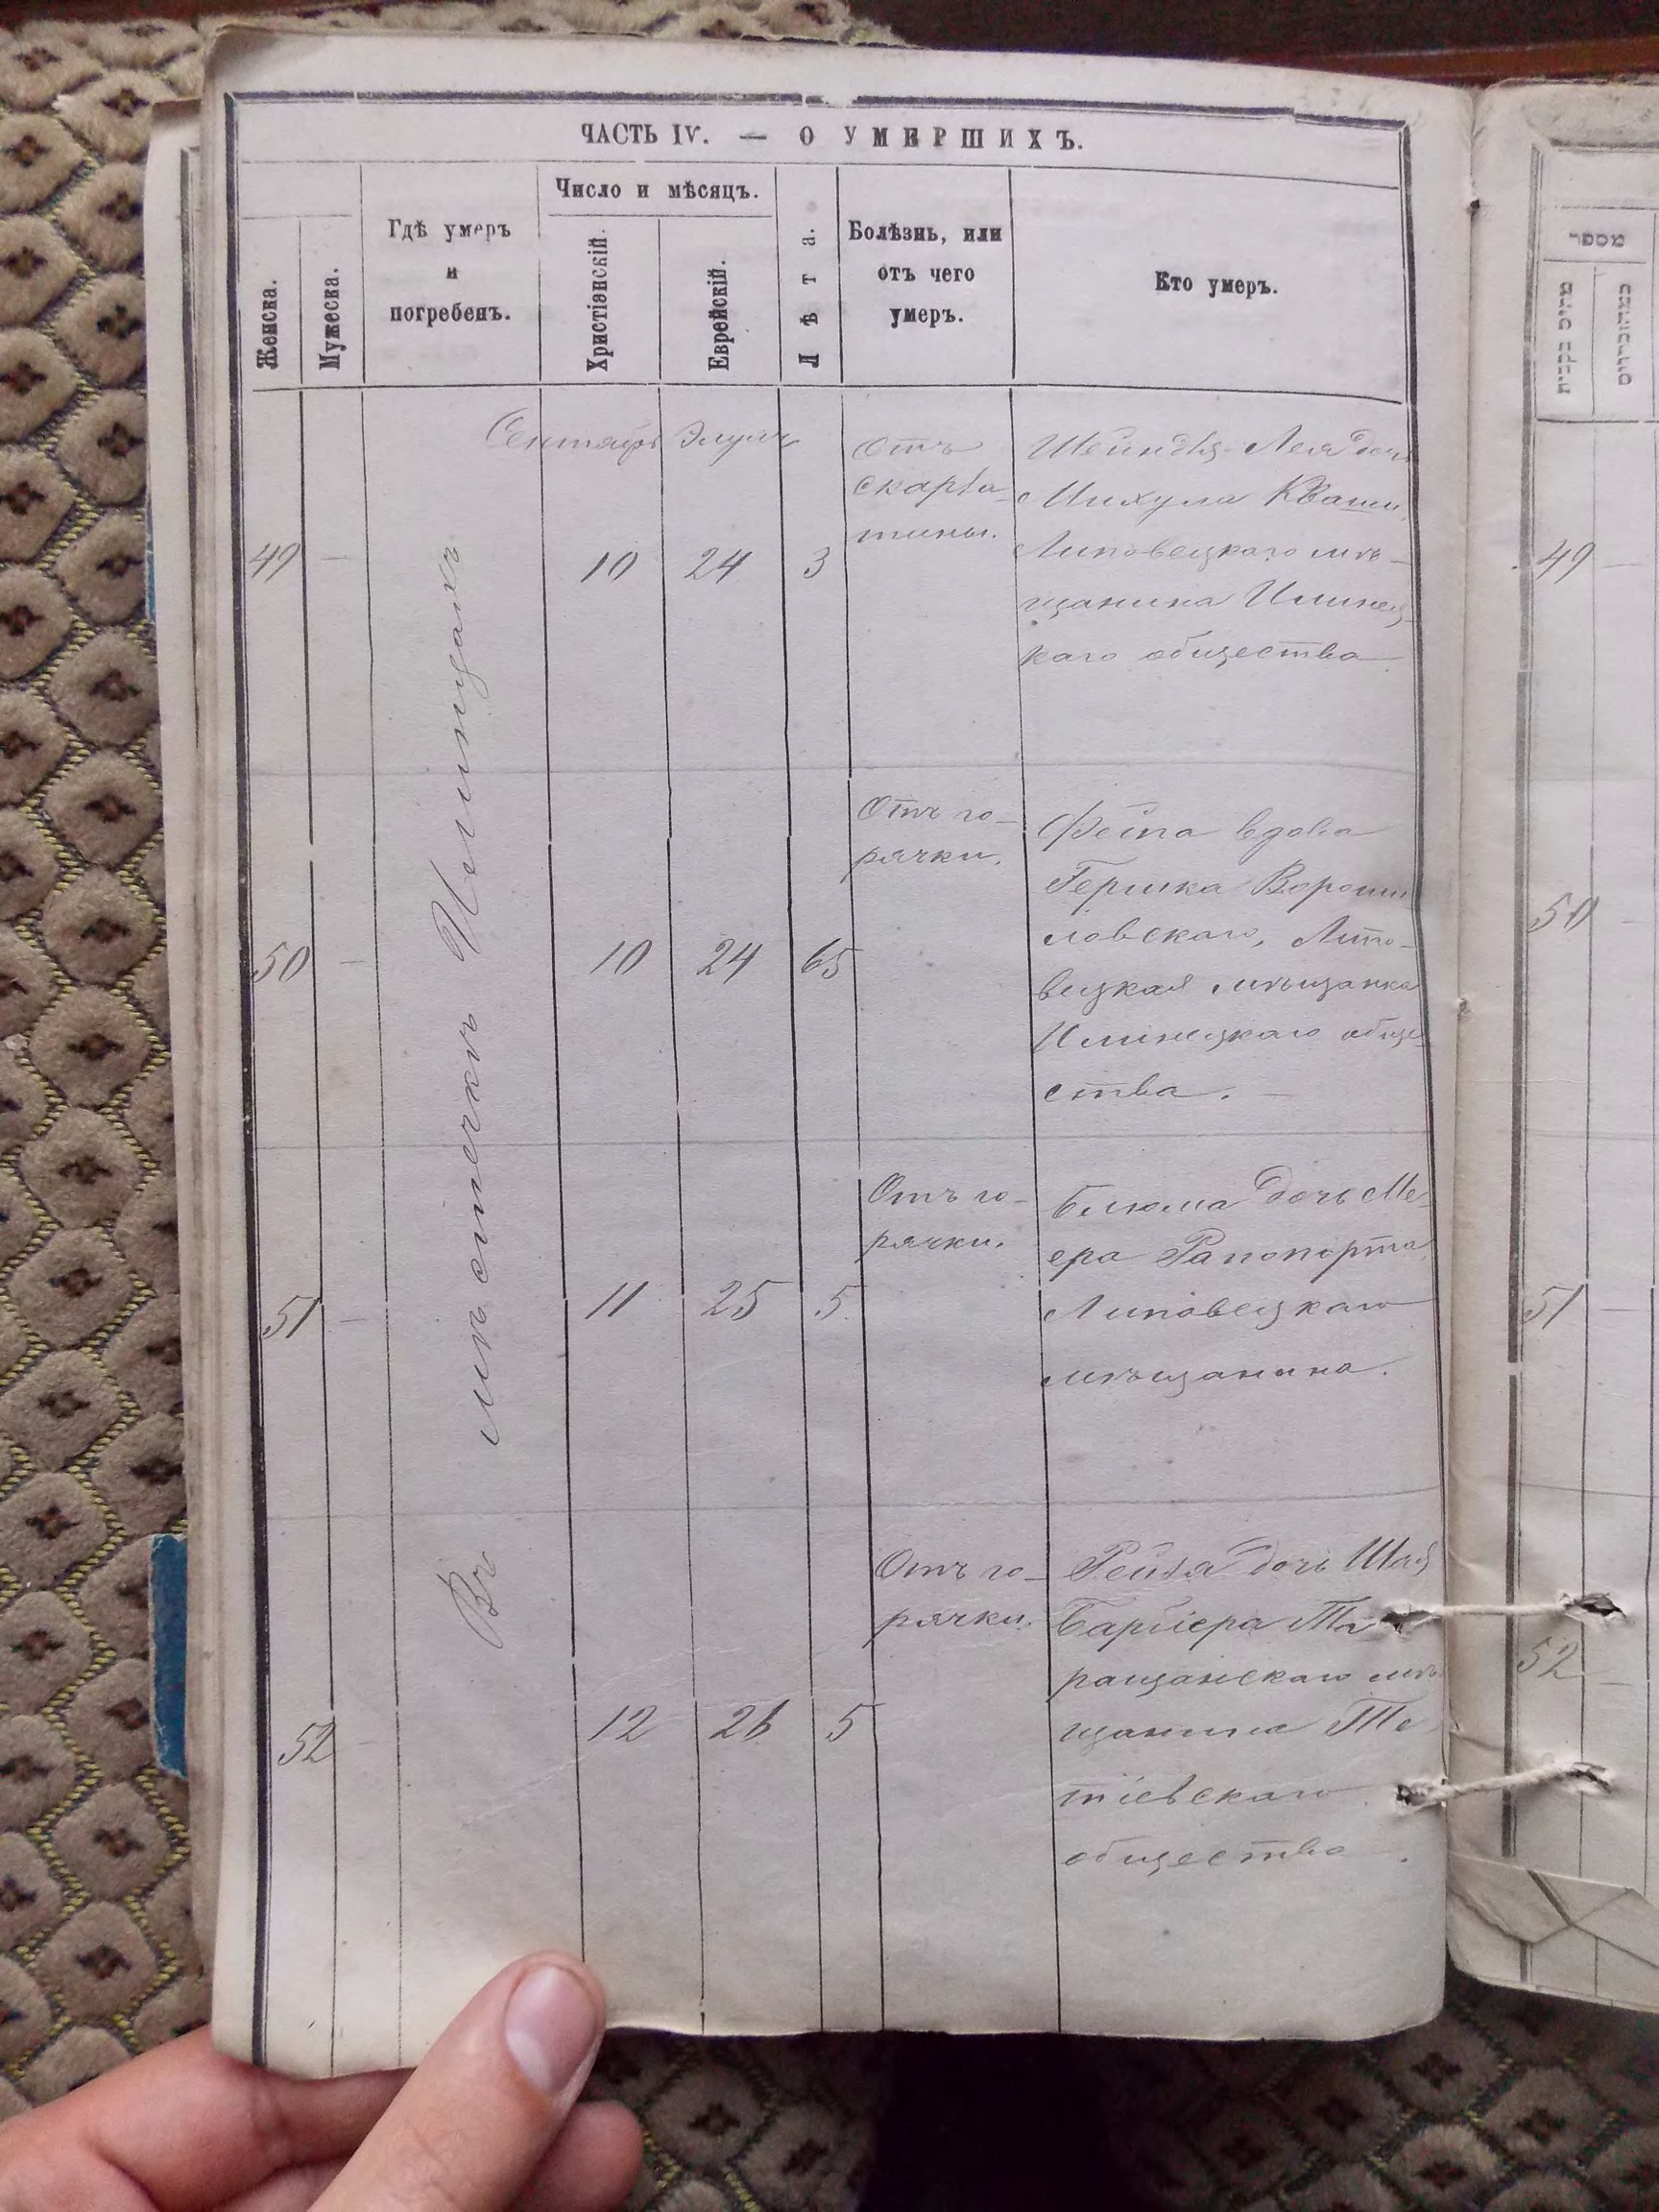 ЧАСТЬ IV. — О УМЕРШИХЪ.
Женска.
Мужеска.
Гдѣ умеръ
и
погребенъ.
Число и мѣсяцъ.
Христіанскій.
Еврейскій.
Лѣта.
Болѣзнь, или
отъ чего
умеръ.
Кто умеръ.
Въ мѣстечкѣ Ильинцахъ
Сентябрь Элулъ
49 — 10 24 3
Отъ
скарла-
тины.
Шейндля-Лея дочь
Михуля Кваши,
Липовецкаго мѣ-
щанина Илинец-
каго общества
50 — 10 24 65
Отъ го-
рячки.
Фейга вдова
Гершка Вороши
ловскаго, Липо-
вецкая мѣщанка
Илинецкаго обще-
ства. —
51 — 11 25 5
Отъ го-
рячки.
Блюма дочь Ме-
ера Рапопорта
Липовецкаго
мѣщанина.
52 — 12 26 5
Отъ го-
рячки.
Рейза дочь
Та
ращанскаго мѣ
щанина Те
тіевскаго
общества.
מספר
49 —
50 —
51 —
52 —